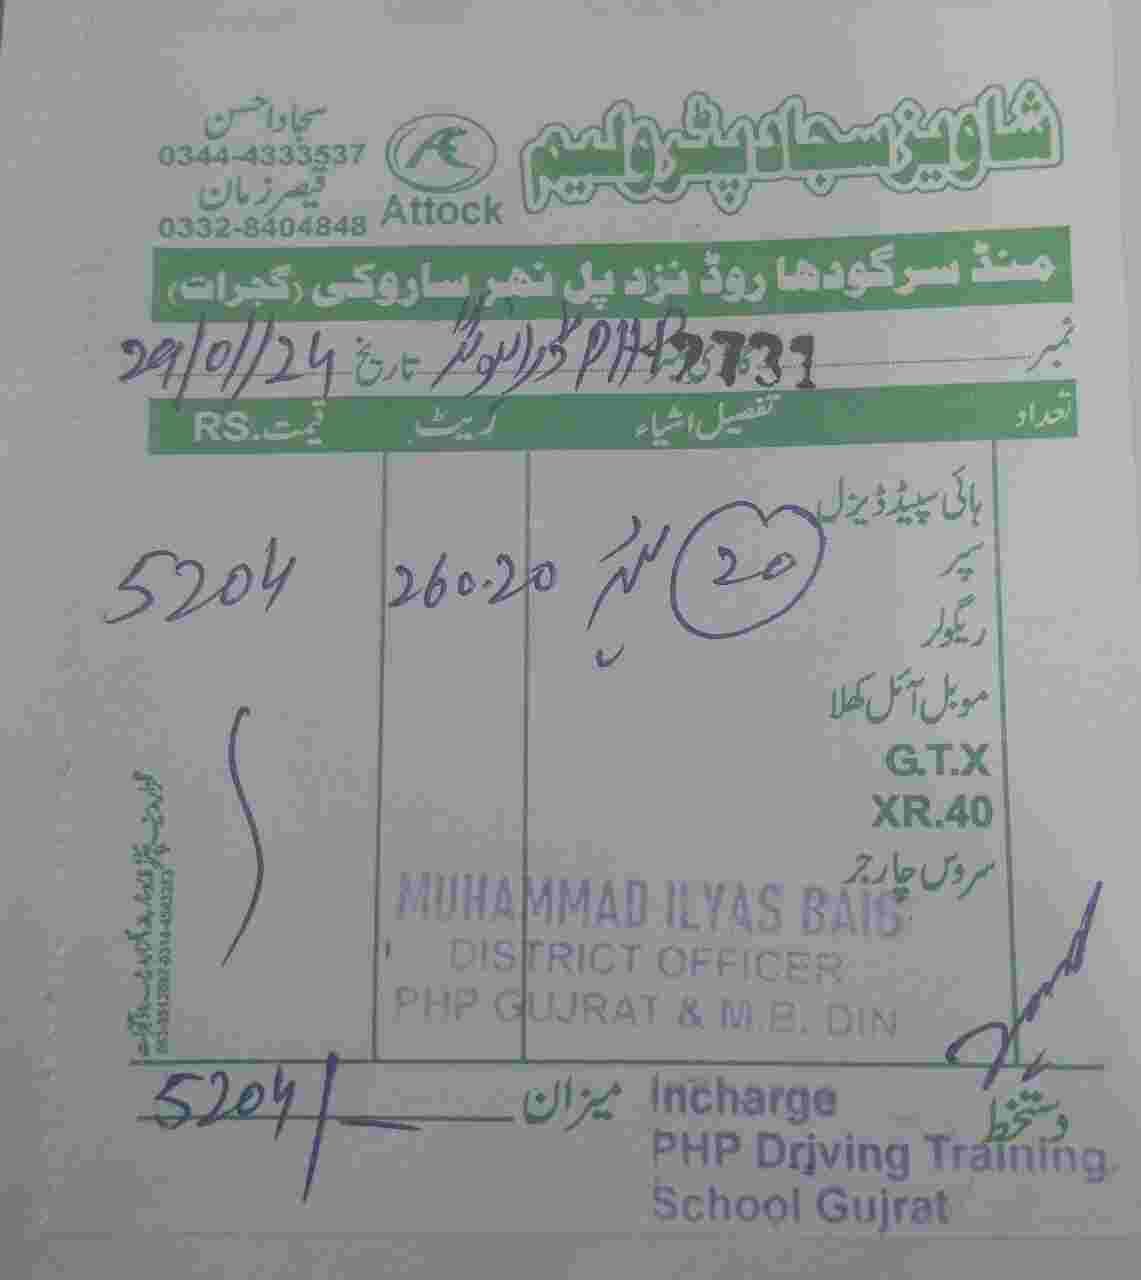 شاویز سجاد پٹرولیم
Attock
سجاد احسن
0344-4333537
قیصر زمان
0332-8404848
منڈ سرگودھا روڈ نزد پل نہر ساروکی (گجرات)
نمبر PHP 2731 تاریخ 29/01/24
تعداد تفصیل اشیاء ریٹ قیمت RS.
ہائی سپیڈ ڈیزل
سپر 20 لیٹر 260.20 5204
ریگولر
موبل آئل کھلا
G.T.X
XR.40
سروس چارجر
MUHAMMAD ILYAS BAIG
DISTRICT OFFICER
PHP GUJRAT & M.B. DIN
میزان 5204/
دستخط
Incharge
PHP Driving Training
School Gujrat